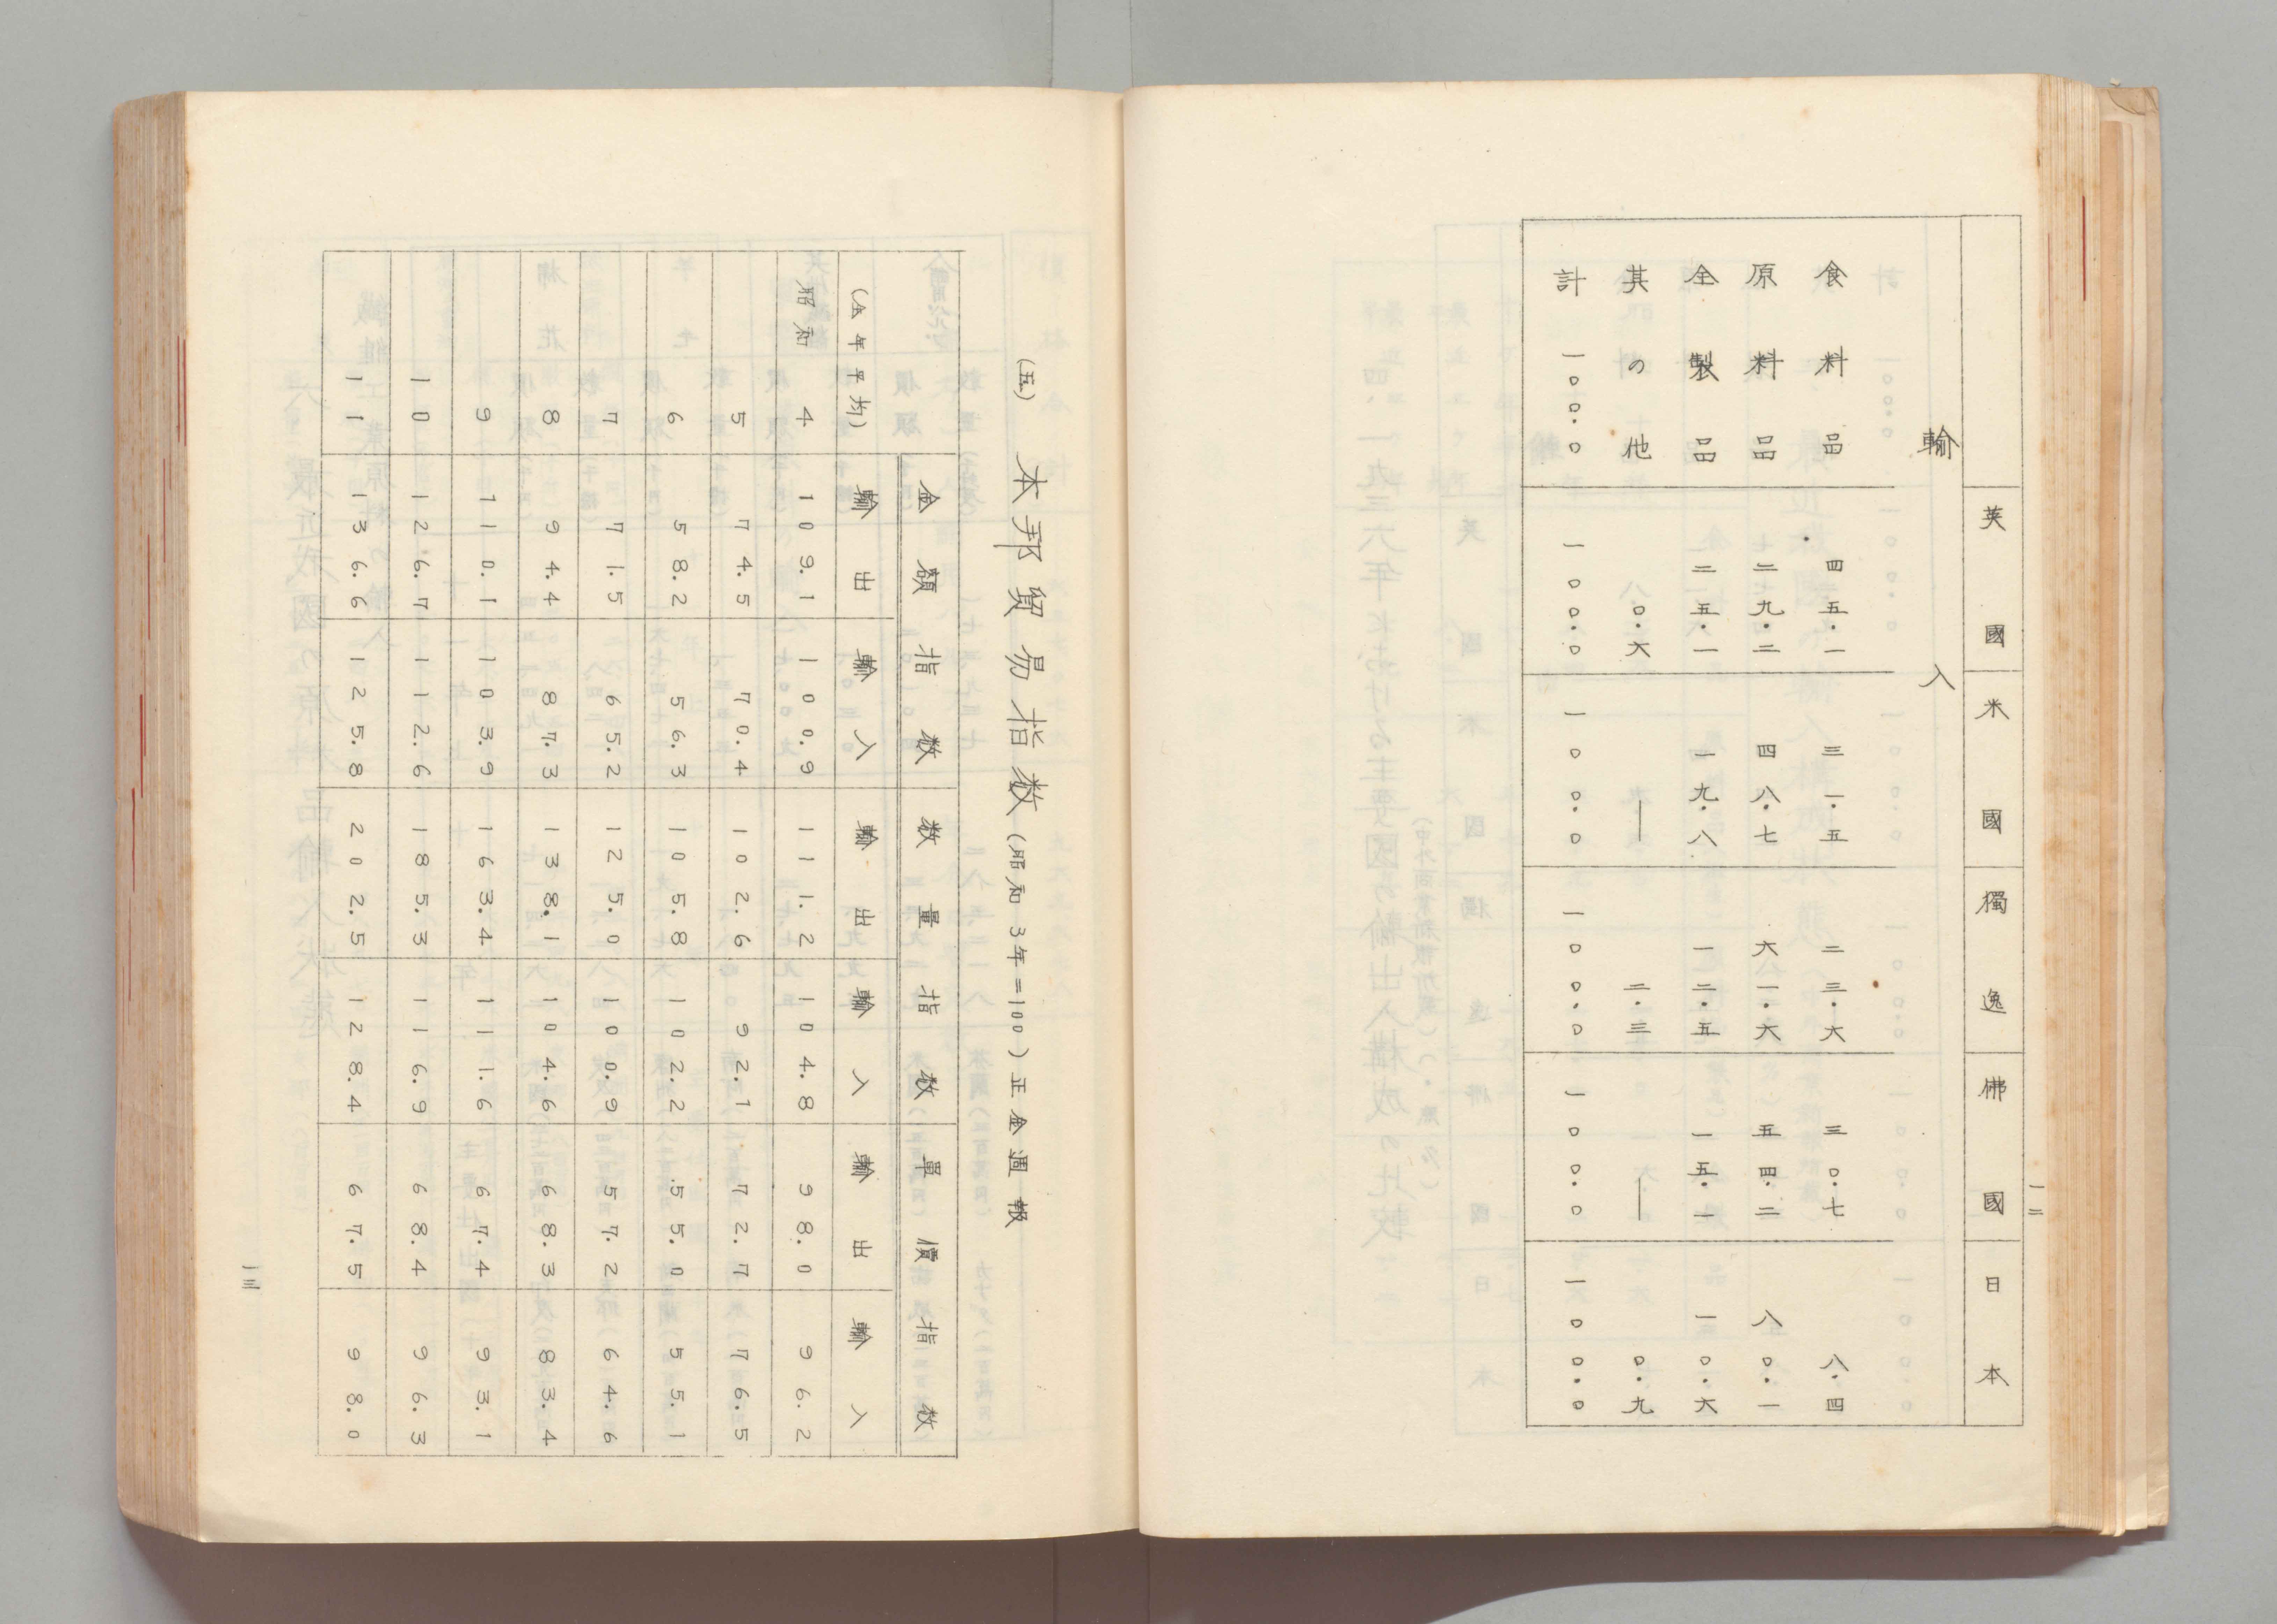 一二
英國 米國 獨逸 佛國 日本
輸入
食料品 四五.一 三一.五 二三.六 三〇.七 八.四
原料品 二九.二 四八.七 六一.六 五四.二 八〇.一
全製品 二五.一 一九.八 一二.五 一五.一 一〇.六
其の他 〇.六 — 二.三 — 〇.九
計一〇〇.〇 一〇〇.〇 一〇〇.〇 一〇〇.〇 一〇〇.〇 一〇〇.〇
(五) 本邦貿易指数(昭和3年=100)正金週報
金額指数 数量指数 單價指数
(全年平均) 輸出 輸入 輸出 輸入 輸出 輸入
昭和4 109.1 100.9 111.2 104.8 98.0 96.2
5 74.5 70.4 102.6 92.1 72.7 76.5
6 58.2 56.3 105.8 102.2 55.0 55.1
7 71.5 65.2 125.0 100.9 57.2 64.6
8 94.4 87.3 138.1 104.6 68.3 83.4
9 110.1 103.9 163.4 111.6 67.4 93.1
10 126.7 112.6 185.3 116.9 68.4 96.3
11 136.6 125.8 202.5 128.4 67.5 98.0
一三